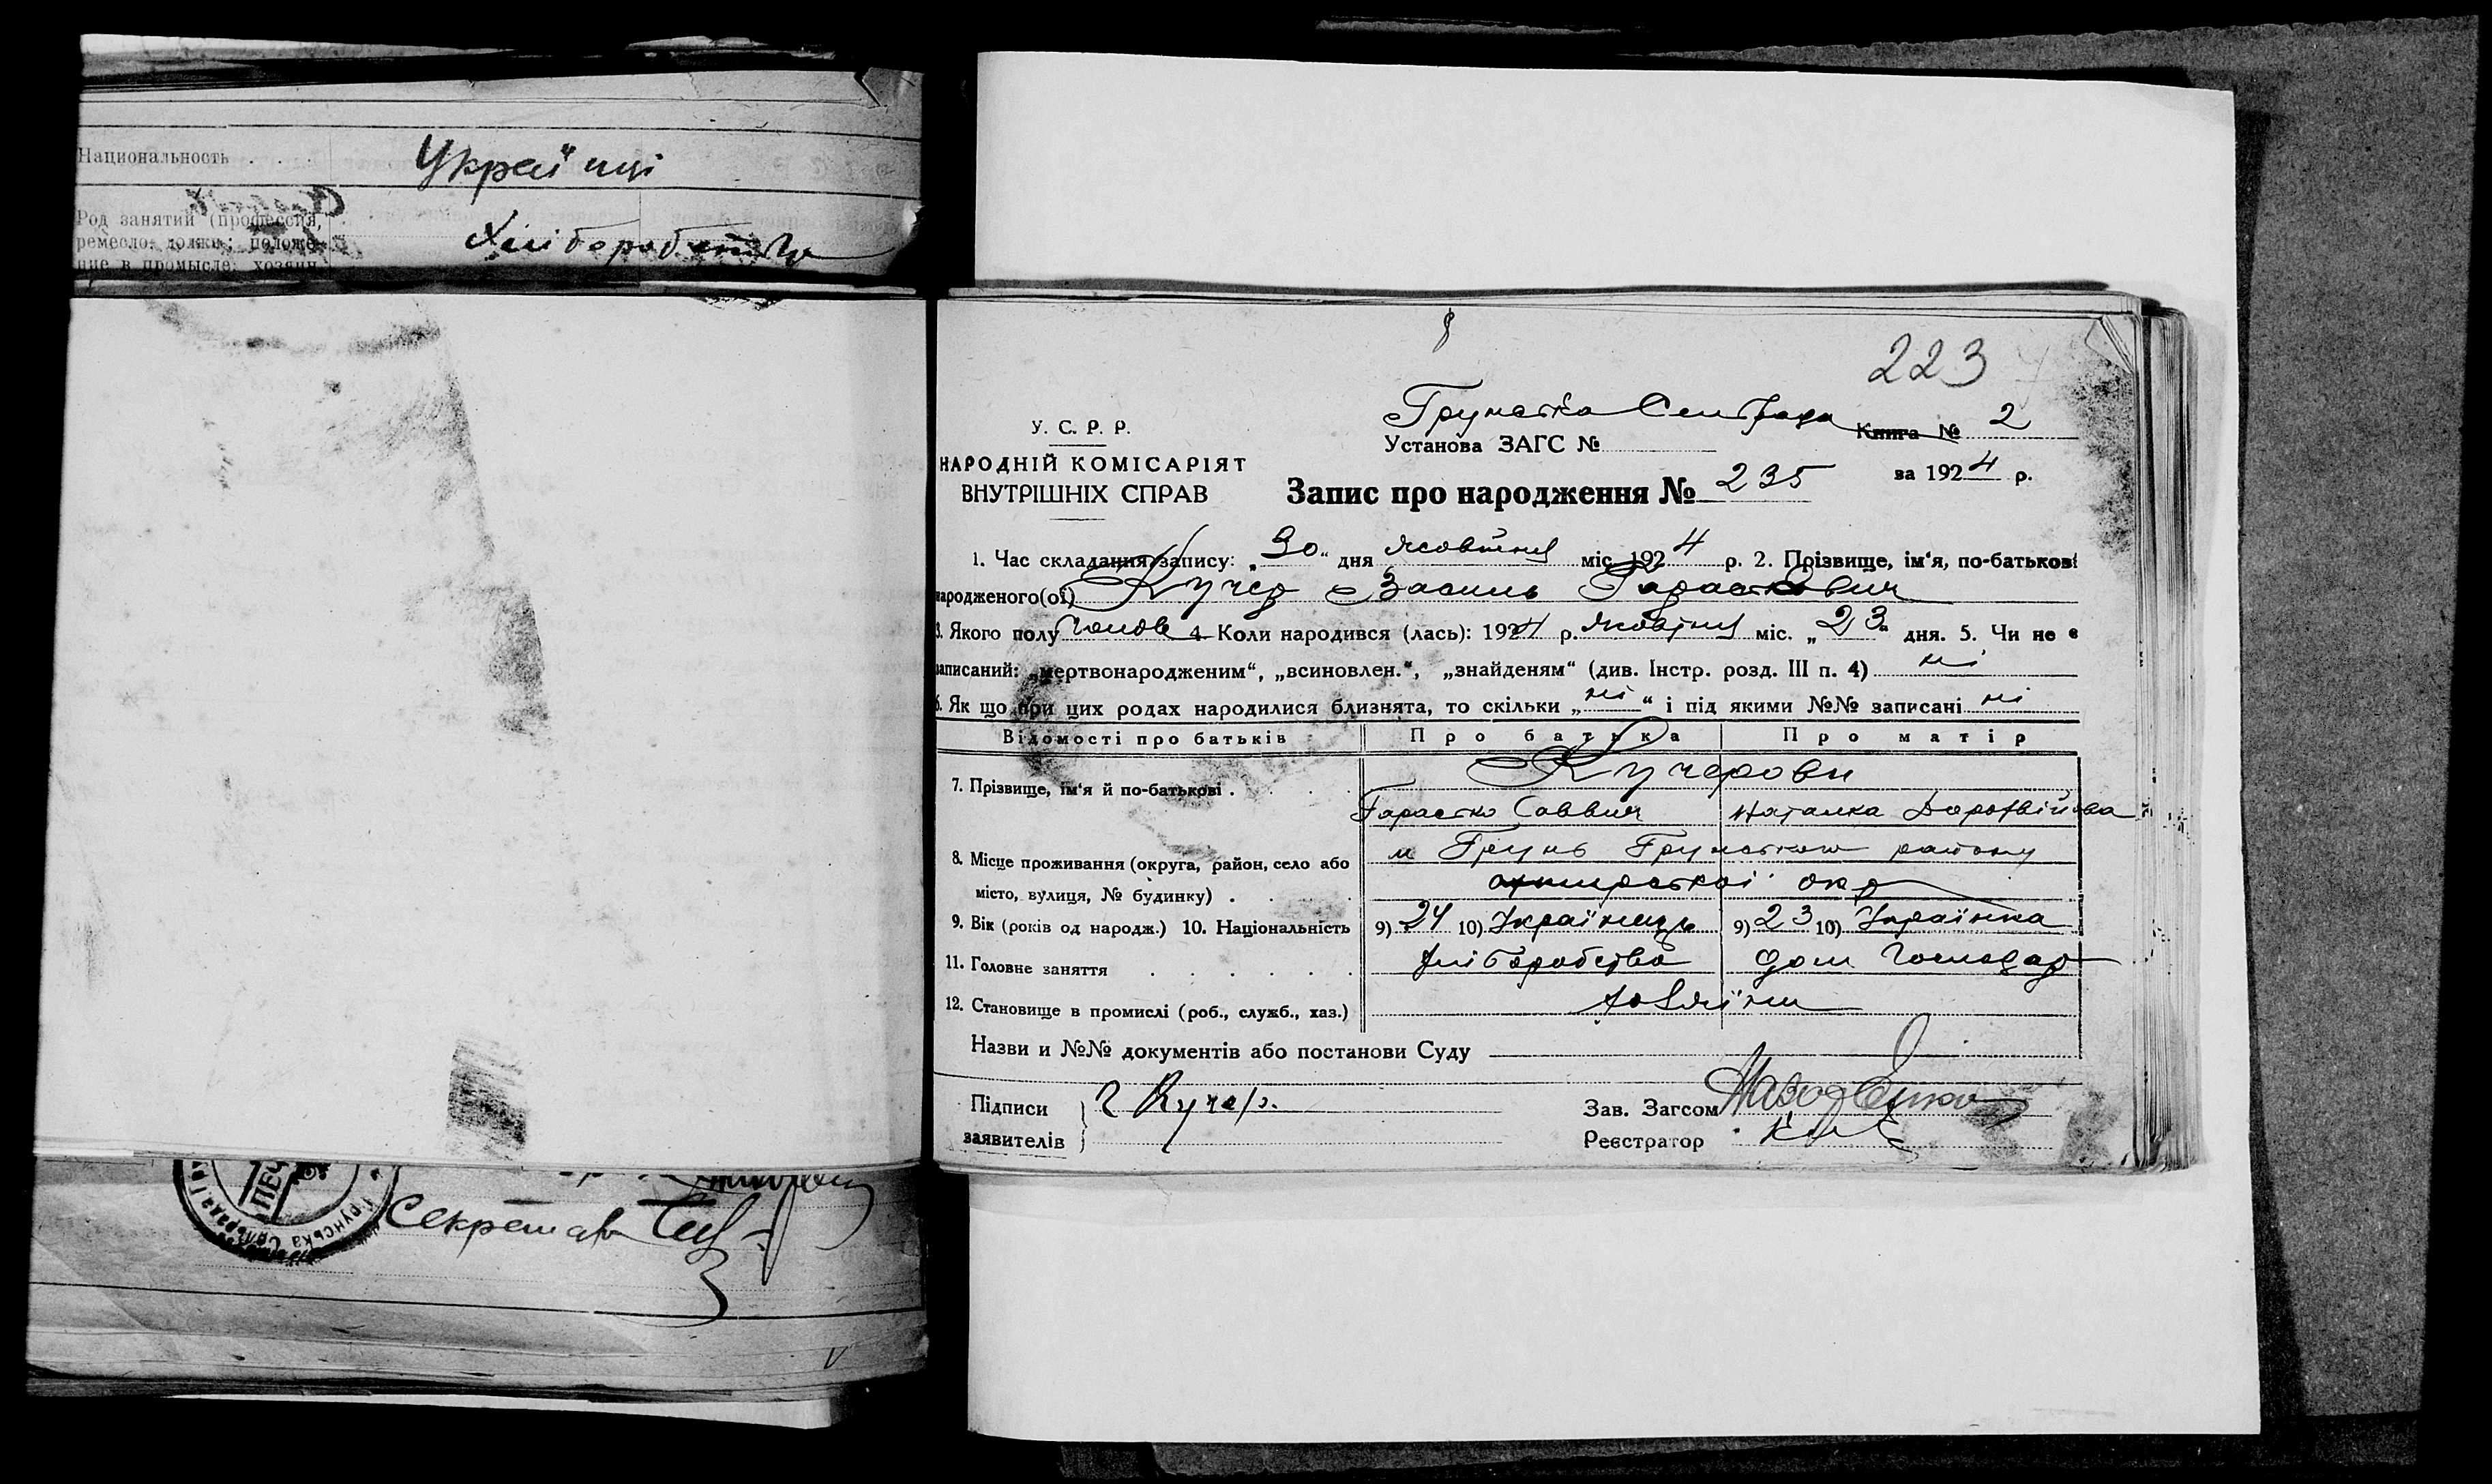 Национальность . . . Українці
Род занятий (профессия,
ремесло, должн.; положе-
ние в промысле: хозяин
Хліборобство
Секретар
Грунська Сільрада
223
Грунська Сельрада
У. С. Р. Р.
Установа ЗАГС № Книга № 2
НАРОДНІЙ КОМІСАРІЯТ
ВНУТРІШНІХ СПРАВ
Запис про народження № 235 за 1924 р.
1. Час складання запису: „30“ дня жовтня міс. 1924 р. 2. Прізвище, ім'я, по-батькові
народженого(ої) Кучер Василь Гараськович
3. Якого полу чолов 4. Коли народився (лась): 1924 р. жовтня міс. „23“ дня. 5. Чи не є
записаний: „мертвонародженим“, „всиновлен.“, „знайденям“ (див. Інстр. розд. III п. 4) ні
6. Як що при цих родах народилися близнята, то скільки „ні“ і під якими №№ записані ні
Відомості про батьків Про батька Про матір
7. Прізвище, ім'я й по-батькові . Кучерови
Гарасько Саввич Наталка Дорофвійова
8. Місце проживання (округа, район, село або
місто, вулиця, № будинку) .
м Грунь Грунського району
охтирської окр
9. Вік (років од народж.) 10. Національність 9) 24 10) Українець 9) 23 10) Українка
11. Головне заняття . . . . . . хліборобство дом господар
12. Становище в промислі (роб., служб., хаз.) хазяїни
Назви и №№ документів або постанови Суду
Підписи
заявителів
Г Кучер.
Зав. Загсом
Реєстратор